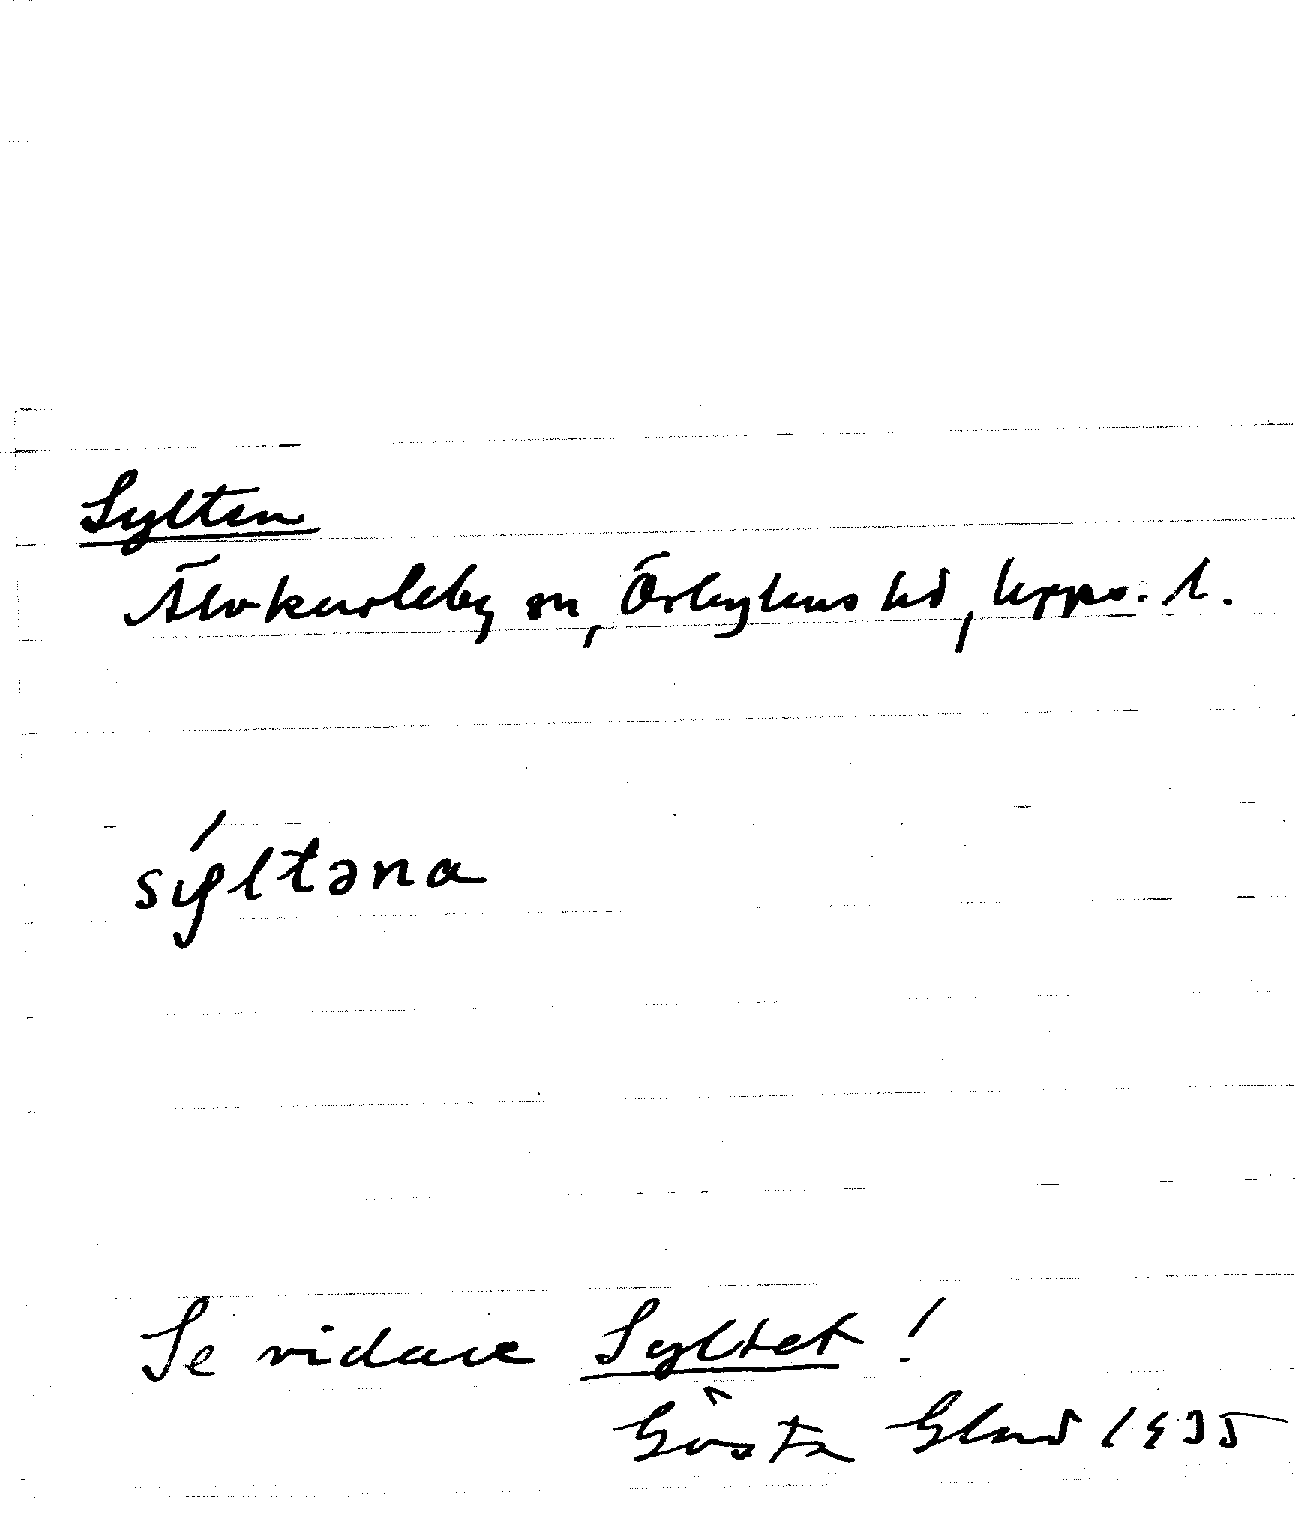 Sylten
Älvkarleby sn, Örbyhus hd, Upps. l.
sýltəna
Se vidare Syltet!
Gösta Glad 1935